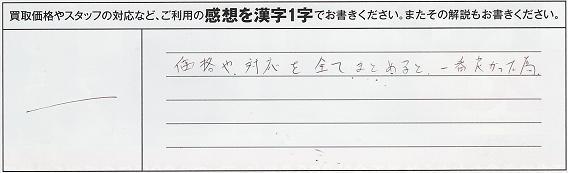 買取価格やスタッフの対応など、ご利用の感想を漢字1字でお書きください。またその解説もお書きください。
一
価格や、対応を全てまとめると、一番良かった為。